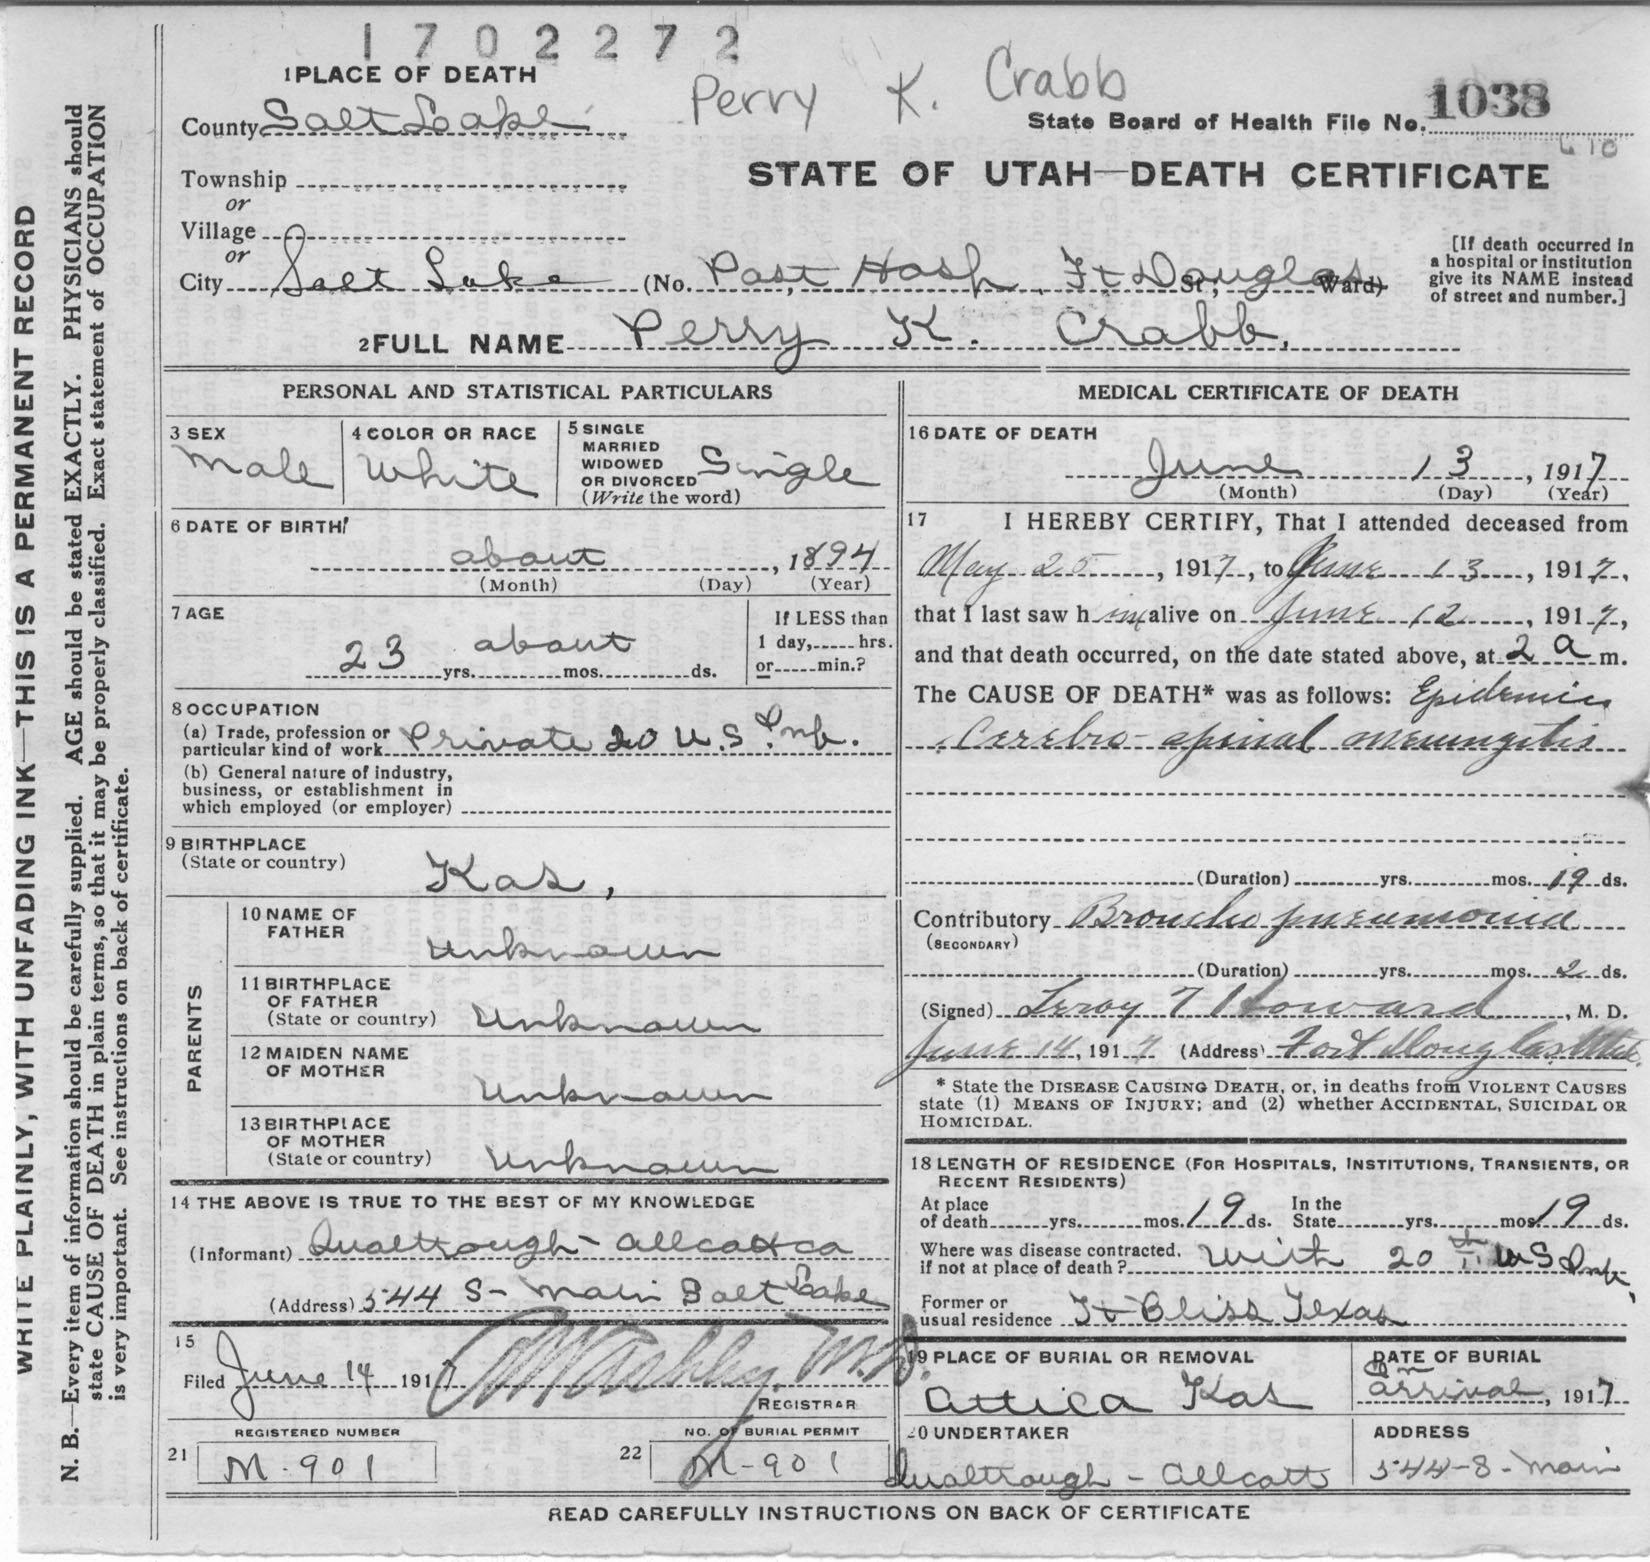 1702272
Perry K. Crabb
1038
State Board of Health File No.
610
STATE OF UTAH—DEATH CERTIFICATE
1 PLACE OF DEATH
County Salt Lake
Township
or
Village
or
City Salt Lake (No. Post Hosp. Ft Douglas St; Ward)
[If death occurred in
a hospital or institution
give its NAME instead
of street and number.]
2 FULL NAME Perry K. Crabb.
PERSONAL AND STATISTICAL PARTICULARS
3 SEX
Male
4 COLOR OR RACE
White
5 SINGLE
MARRIED
WIDOWED
OR DIVORCED
(Write the word)
Single
6 DATE OF BIRTH
about , 1894
(Month) (Day) (Year)
7 AGE
23 yrs. about mos. ds.
If LESS than
1 day, hrs.
or min.?
8 OCCUPATION
(a) Trade, profession or
particular kind of work Private 20 U.S Inf.
(b) General nature of industry,
business, or establishment in
which employed (or employer)
9 BIRTHPLACE
(State or country)
Kas,
PARENTS
10 NAME OF
FATHER
Unknown
11 BIRTHPLACE
OF FATHER
(State or country) Unknown
12 MAIDEN NAME
OF MOTHER
Unknown
13 BIRTHPLACE
OF MOTHER
(State or country) Unknown
14 THE ABOVE IS TRUE TO THE BEST OF MY KNOWLEDGE
(Informant) Qualtrough - Allcott co
(Address) 544 S- Main Salt Lake
15
Filed June 14 1917
M.D.
REGISTRAR
REGISTERED NUMBER
21 M-901
NO. OF BURIAL PERMIT
22 M-901
MEDICAL CERTIFICATE OF DEATH
16 DATE OF DEATH
June 13, 1917
(Month) (Day) (Year)
17 I HEREBY CERTIFY, That I attended deceased from
May 25, 1917, to June 13, 1917,
that I last saw h im alive on June 12, 1917,
and that death occurred, on the date stated above, at 2 a m.
The CAUSE OF DEATH* was as follows: Epidemic
Cerebro-spinal meningitis
(Duration) yrs. mos. 19 ds.
Contributory Broncho pneumonia
(SECONDARY)
(Duration) yrs. mos. 2 ds.
(Signed) Leroy T Howard, M. D.
June 14, 1917 (Address) Fort Douglas, Utah.
* State the DISEASE CAUSING DEATH, or, in deaths from VIOLENT CAUSES
state (1) MEANS OF INJURY; and (2) whether ACCIDENTAL, SUICIDAL OR
HOMICIDAL.
18 LENGTH OF RESIDENCE (FOR HOSPITALS, INSTITUTIONS, TRANSIENTS, OR
RECENT RESIDENTS)
At place
of death yrs. mos. 19 ds. In the
State yrs. mos. 19 ds.
Where was disease contracted,
if not at place of death? With 20th U S Inf,
Former or
usual residence Ft Bliss Texas
19 PLACE OF BURIAL OR REMOVAL
Attica Kas
DATE OF BURIAL
On
arrival, 1917
20 UNDERTAKER
Qualtrough - Allcott
ADDRESS
544-S-Main
READ CAREFULLY INSTRUCTIONS ON BACK OF CERTIFICATE
WRITE PLAINLY, WITH UNFADING INK—THIS IS A PERMANENT RECORD
N. B.—Every item of information should be carefully supplied. AGE should be stated EXACTLY. PHYSICIANS should
state CAUSE OF DEATH in plain terms, so that it may be properly classified. Exact statement of OCCUPATION
is very important. See instructions on back of certificate.